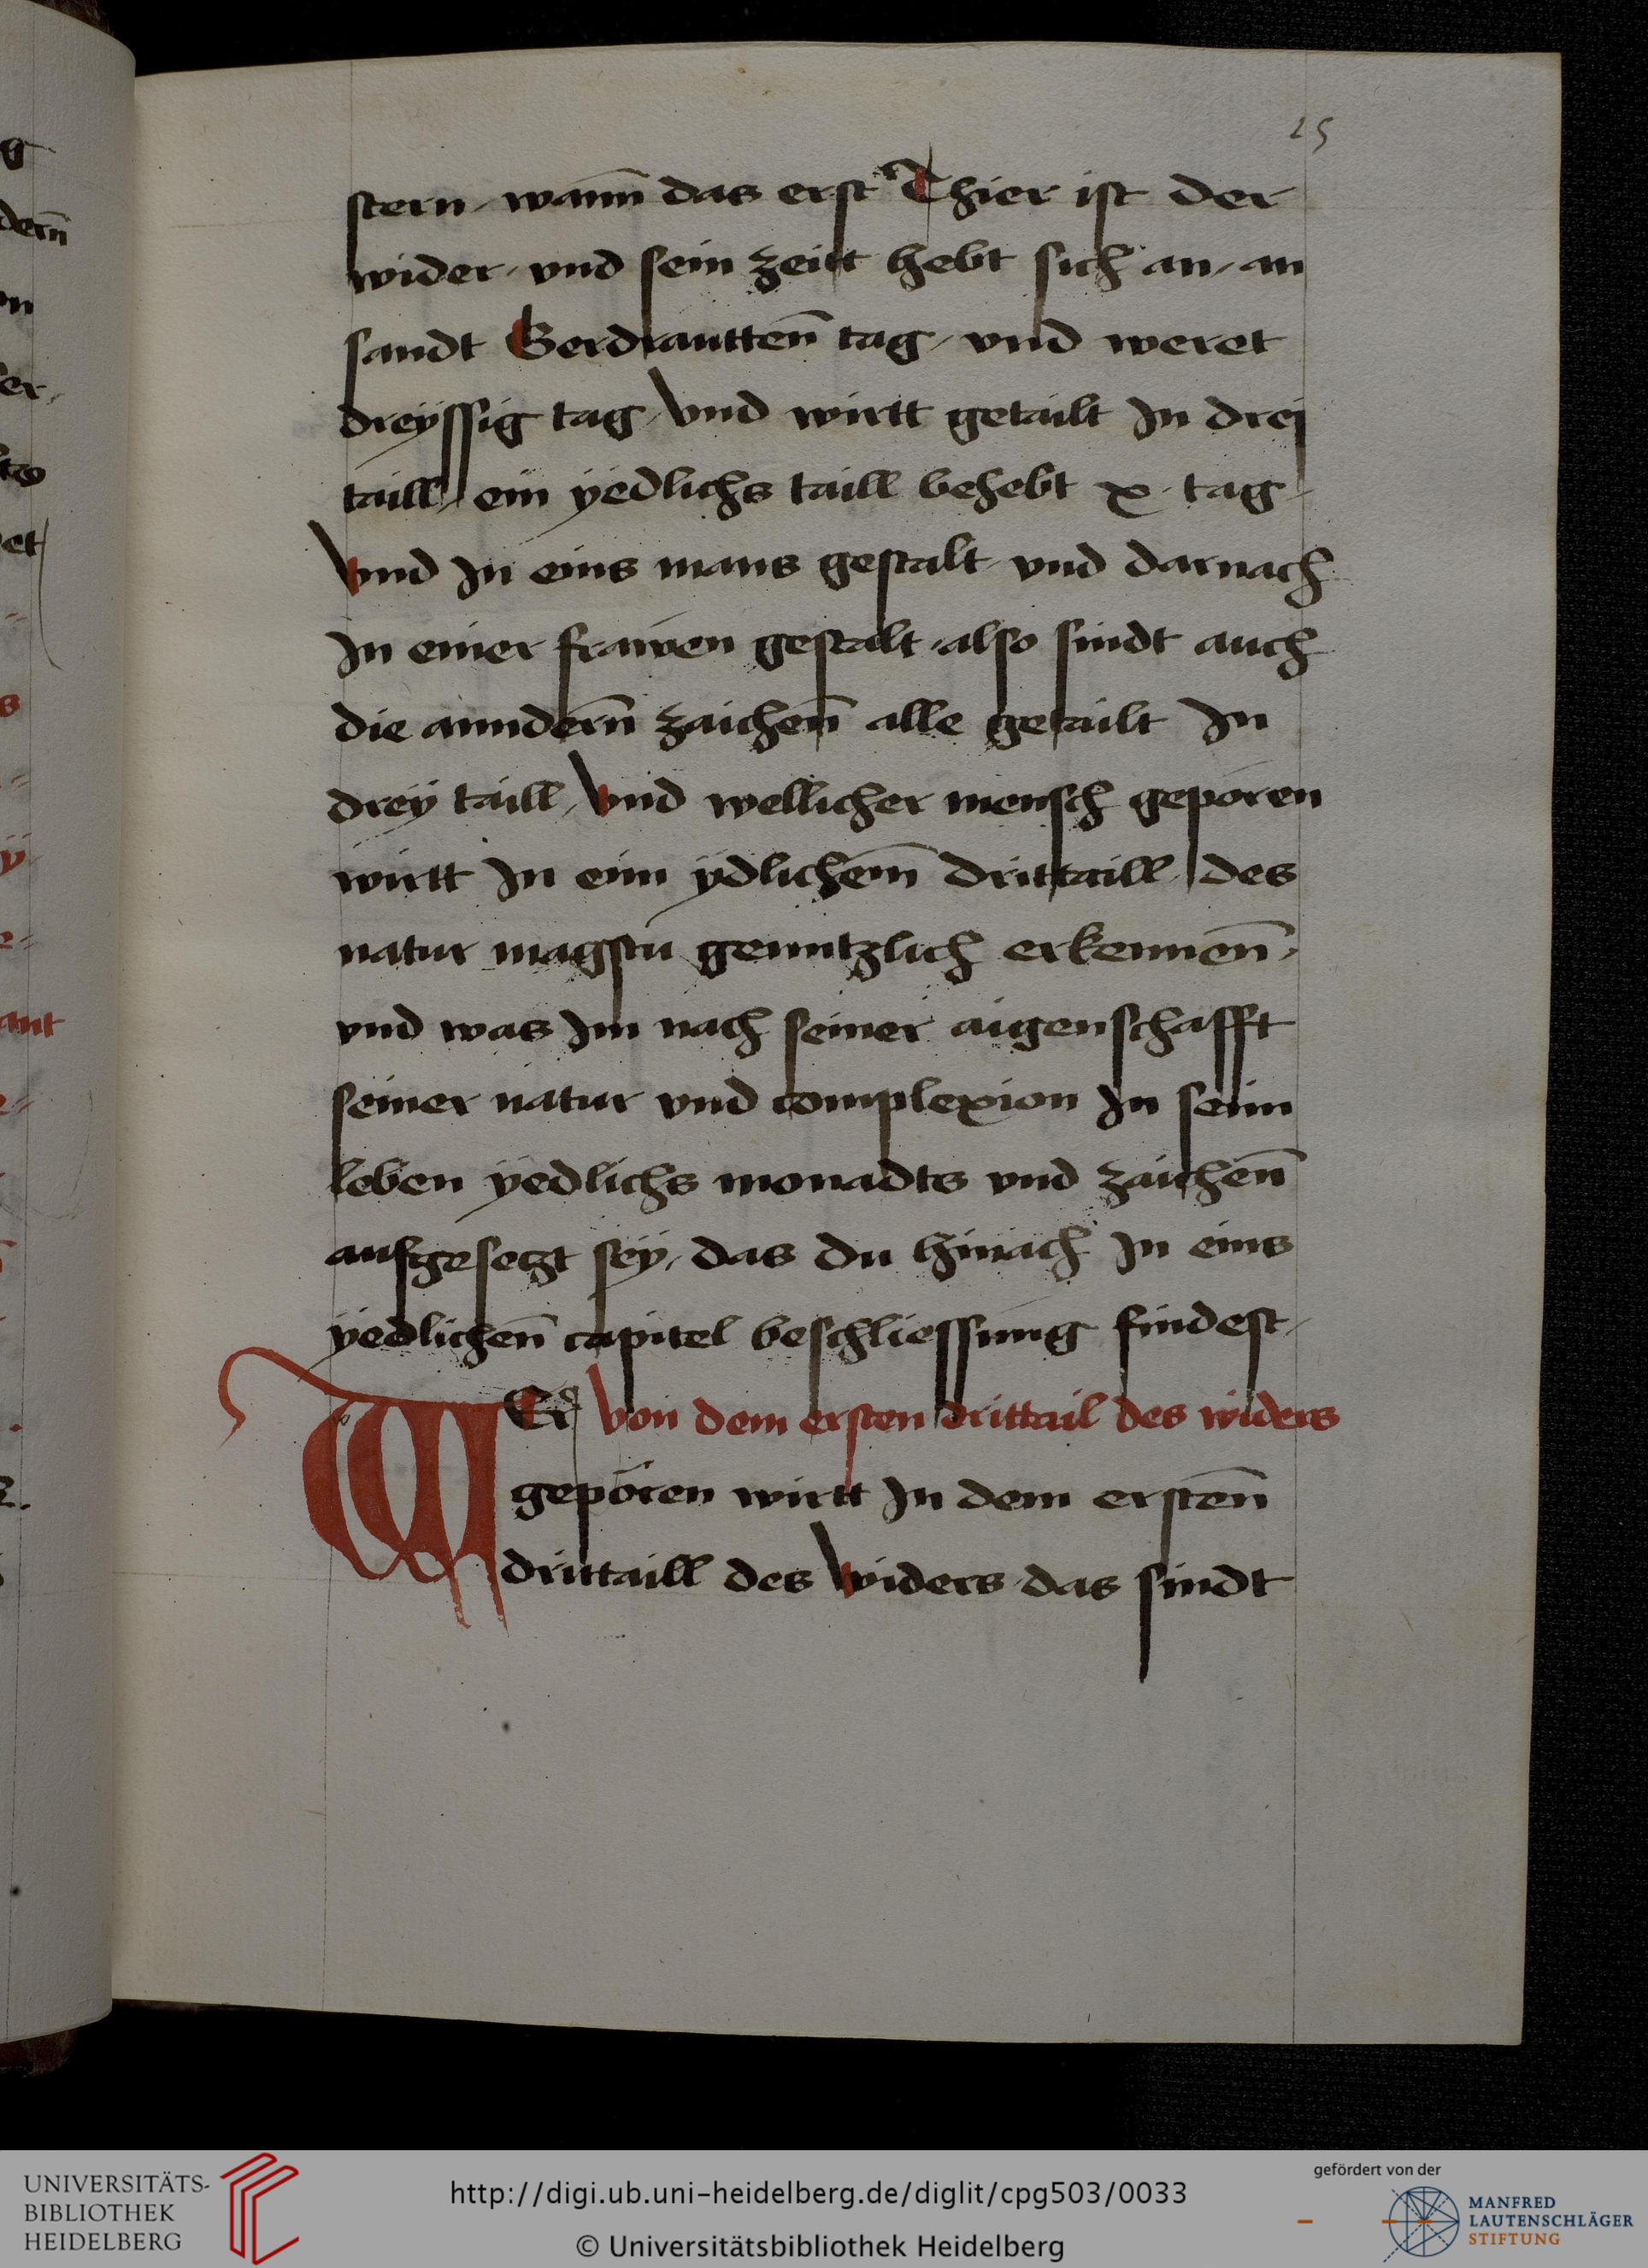 25
stern / wann̄ das erst Thier ist der
wider / vnd sein zeitt hebt sich an / an
sandt Gerdrauttēn tag / vnd weret
dreÿssig tag / Vnd wirtt getailt Jn drej
taill / ein ÿedlichs taill behebt x tag /
Vnd Jn eins mans gestalt vnd darnach
Jn einer frawen gestalt / also sindt auch
die anndern̄ zaichen̄ alle getailt Jn
dreÿ taill / Vnd wellicher mensch geporen
wirtt Jn eim ÿdlichem̄ drittaill / des
natur magstu genntzlich erkennen̄ /
vnd was Jm nach seiner aigenschafft
seiner natur vnd complexion Jn seim
leben ÿedlichs monadts vnd zaichen̄
aufgesetzt seÿ / das du hinach Jn eins
ÿedlichen̄ capitel beschliessung findest /
WEr von dem ersten drittail des widers
geporen wirtt Jn dem ersten̄
drittaill des Widers das sindt
UNIVERSITÄTS-
BIBLIOTHEK
HEIDELBERG
http://digi.ub.uni-heidelberg.de/diglit/cpg503/0033
© Universitätsbibliothek Heidelberg
gefördert von der
MANFRED
LAUTENSCHLÄGER
STIFTUNG